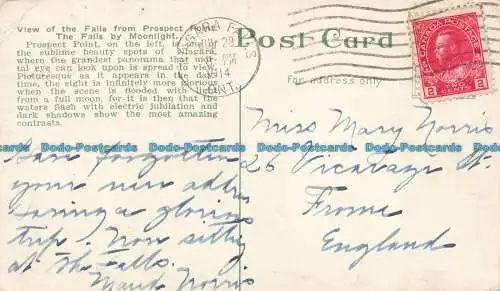 View of the Falls from Prospect
The Falls by Moonlight.
Prospect Point, on the left, is one of
the sublime beauty spots of Niagara,
where the grandest panorama that mor-
tal eye can look upon is spread to view.
Picturesque as it appears in the day
time, the sight is infinitely more glorious
when the scene is flooded with light
from a full moon, for it is then that the
waters flash with electric jubilation and
dark shadows show the most amazing
contrasts.
NIAGARA FALLS
29
PM
14
ONT.
Post Card
For address only
CANADA POSTAGE
2 2
TWO CENTS
Have forgotten
your new address
having a glorious
trip. Now sitting
at The Falls.
Maud Norris
Miss Mary Norris
26 Vicarage St.
Frome
England
Dodo-Postcards Dodo-Postcards Dodo-Postcards